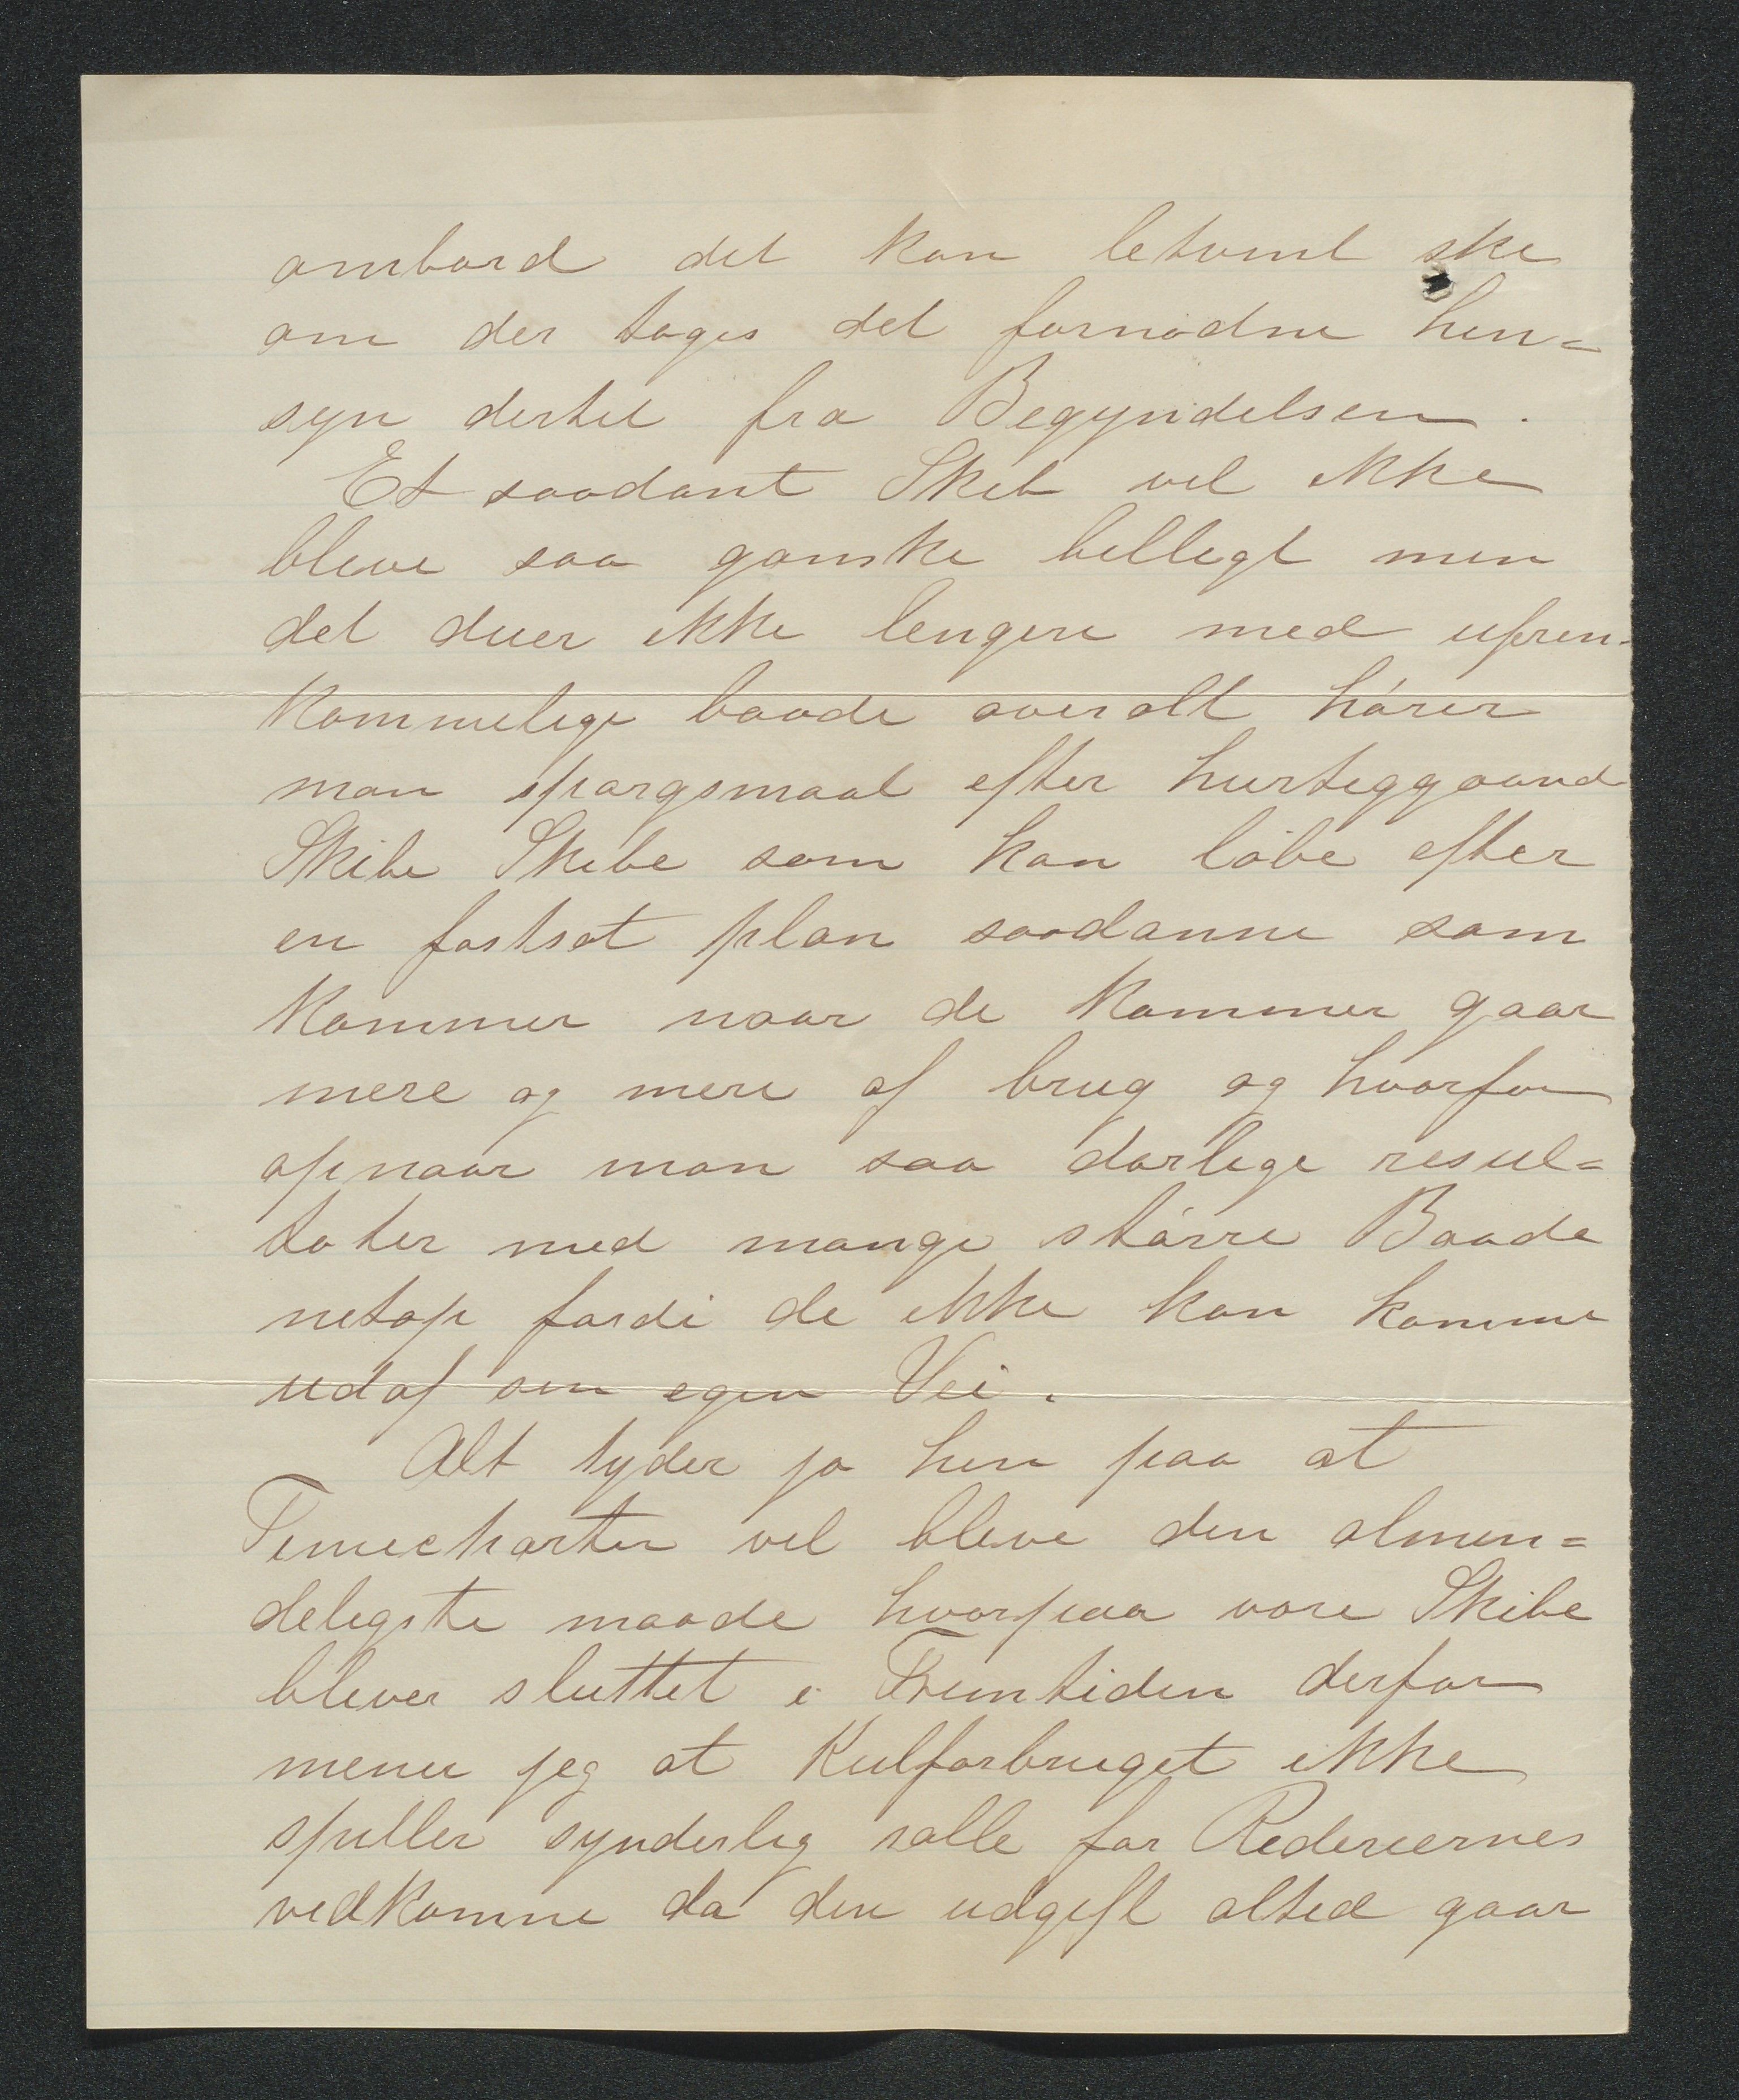 ombord det kan letvint ske
om der tages det fornødne hen=
syn dertil fra Begyndelsen.
Et saadant Skib vil ikke
blive saa ganske billigt men
det duer ikke lenger med ufrem-
kommelige baade overalt hører
man spørgsmaal efter hurtiggaaend
Skibe Skibe som kan løbe efter
en fastsat plan saadanne som
kommer naar de kommer gaar
mere og mere af brug og hvorfor
opnaar man saa darlige resul=
tater med mange større Baade
netop fordi de ikke kan komme
udaf sin egen Vei.
Alt tyder jo hen paa at
Timecharter vil blive den almin=
deligste maade hvorpaa vore Skibe
bliver sluttet i Fremtiden derfor
mener jeg at Kulforbruget ikke
spiller synderlig rolle for Rederiernes
vedkomne da den udgift altid gaar